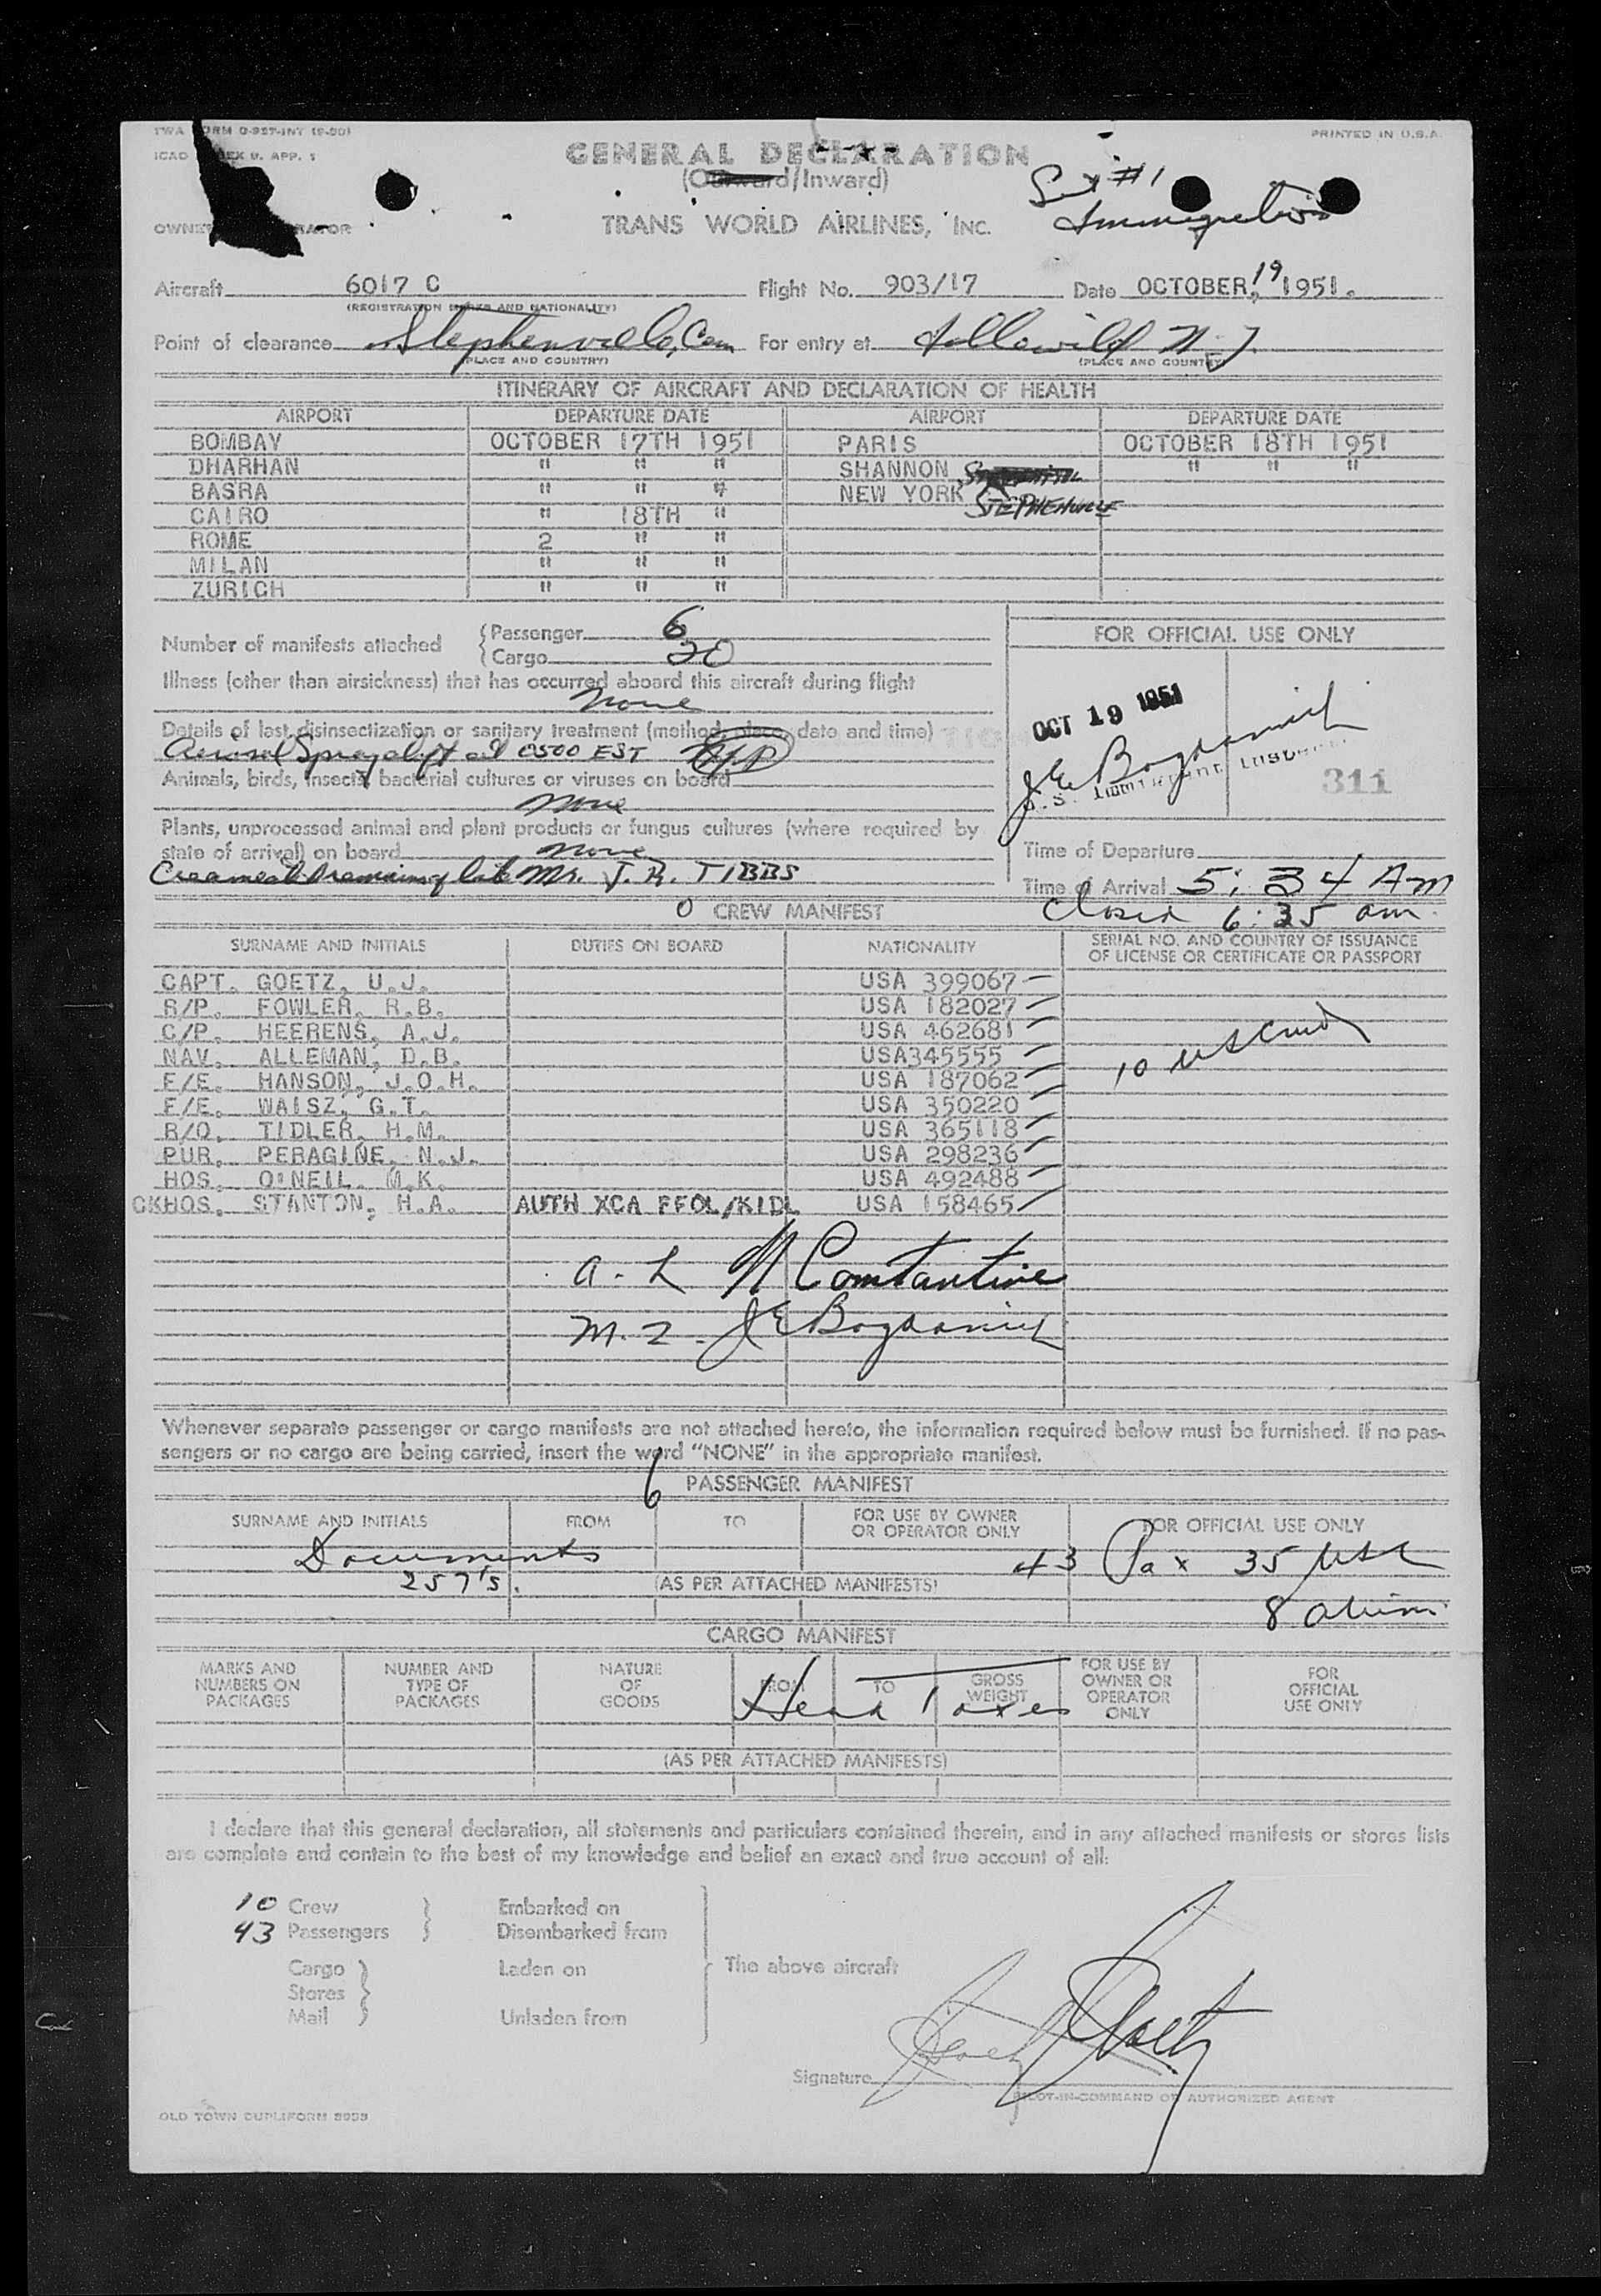 TWA FORM O-957-INT (9-50)
PRINTED IN U.S.A.
ICAO ANNEX 9, APP. 1
GENERAL DECLARATION
(Outward/Inward)
#1
Immigration
TRANS WORLD AIRLINES, INC.
Aircraft 6017 C Flight No. 903/17 Date OCTOBER, 19 1951.
(REGISTRATION MARKS AND NATIONALITY)
Point of clearance Stephenville, Can For entry at Idlewild N.Y.
(PLACE AND COUNTRY) (PLACE AND COUNTRY)
ITINERARY OF AIRCRAFT AND DECLARATION OF HEALTH
AIRPORT DEPARTURE DATE AIRPORT DEPARTURE DATE
BOMBAY OCTOBER 17TH 1951 PARIS OCTOBER 18TH 1951
DHARHAN " " " SHANNON " " "
BASRA " " " NEW YORK
STEPHENVILLE
CAIRO " 18TH "
ROME 2 " "
MILAN " " "
ZURICH " " "
Number of manifests attached {Passenger 6
{Cargo 20
FOR OFFICIAL USE ONLY
Illness (other than airsickness) that has occurred aboard this aircraft during flight
None
Details of last disinsectization or sanitary treatment (method, place, date and time)
Aerosol Spray 0500 EST
Animals, birds, insects, bacterial cultures or viruses on board
None
Plants, unprocessed animal and plant products or fungus cultures (where required by
state of arrival) on board None
Cremated Remains of late Mr. J. R. TIBBS
OCT 19 1951
J E Bogdanich
U.S. Immigrant Inspector
311
Time of Departure
Time of Arrival 5:34 AM
Closed 6:35 am.
0 CREW MANIFEST
SURNAME AND INITIALS DUTIES ON BOARD NATIONALITY SERIAL NO. AND COUNTRY OF ISSUANCE
OF LICENSE OR CERTIFICATE OR PASSPORT
CAPT. GOETZ, U.J. USA 399067
R/P. FOWLER, R.B. USA 182027
C/P. HEERENS, A.J. USA 462681
NAV. ALLEMAN, D.B. USA345555
F/E. HANSON, J.O.H. USA 187062
F/E. WAISZ, G.T. USA 350220
R/O. TIDLER, H.M. USA 365118
PUR. PERAGINE, N.J. USA 298236
HOS. O'NEIL. M.K. USA 492488
CKHOS. STANTON, H.A. AUTH XCA FFOL/KIDL USA 158465
10
A. L Constantine
M. 2 - J E Bogdanich
Whenever separate passenger or cargo manifests are not attached hereto, the information required below must be furnished. If no pas-
sengers or no cargo are being carried, insert the word "NONE" in the appropriate manifest.
6 PASSENGER MANIFEST
SURNAME AND INITIALS FROM TO FOR USE BY OWNER
OR OPERATOR ONLY FOR OFFICIAL USE ONLY
Documents 43 Pax 35 USC
257's. (AS PER ATTACHED MANIFESTS)
8 aliens
CARGO MANIFEST
MARKS AND
NUMBERS ON
PACKAGES
NUMBER AND
TYPE OF
PACKAGES
NATURE
OF
GOODS
FROM
TO
GROSS
WEIGHT
FOR USE BY
OWNER OR
OPERATOR
ONLY
FOR
OFFICIAL
USE ONLY
Head Taxes
(AS PER ATTACHED MANIFESTS)
I declare that this general declaration, all statements and particulars contained therein, and in any attached manifests or stores lists
are complete and contain to the best of my knowledge and belief an exact and true account of all:
10 Crew Embarked on
43 Passengers Disembarked from
Cargo Laden on The above aircraft
Stores
Mail Unladen from
Signature
PILOT-IN-COMMAND OR AUTHORIZED AGENT
OLD TOWN DUPLIFORM 9999